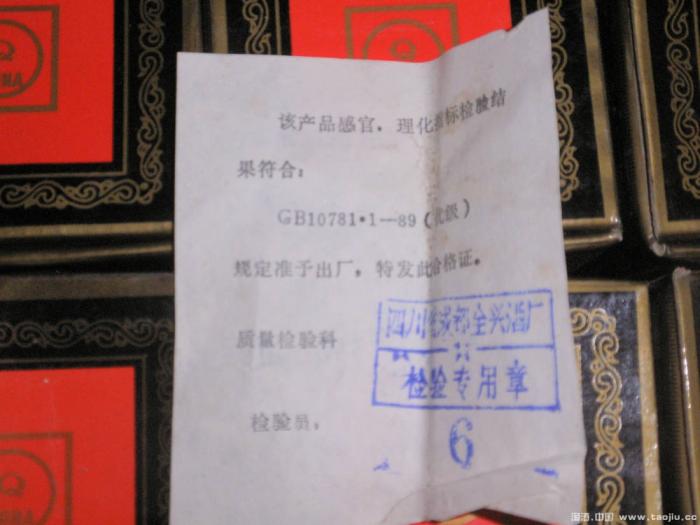 该产品感官、理化指标检验结
果符合：
GB10781·1—89（优级）
规定准予出厂，特发此合格证。
质量检验科
四川省成都全兴酒厂
检验专用章
检验员：
6
淘酒.中国 www.taojiu.cc